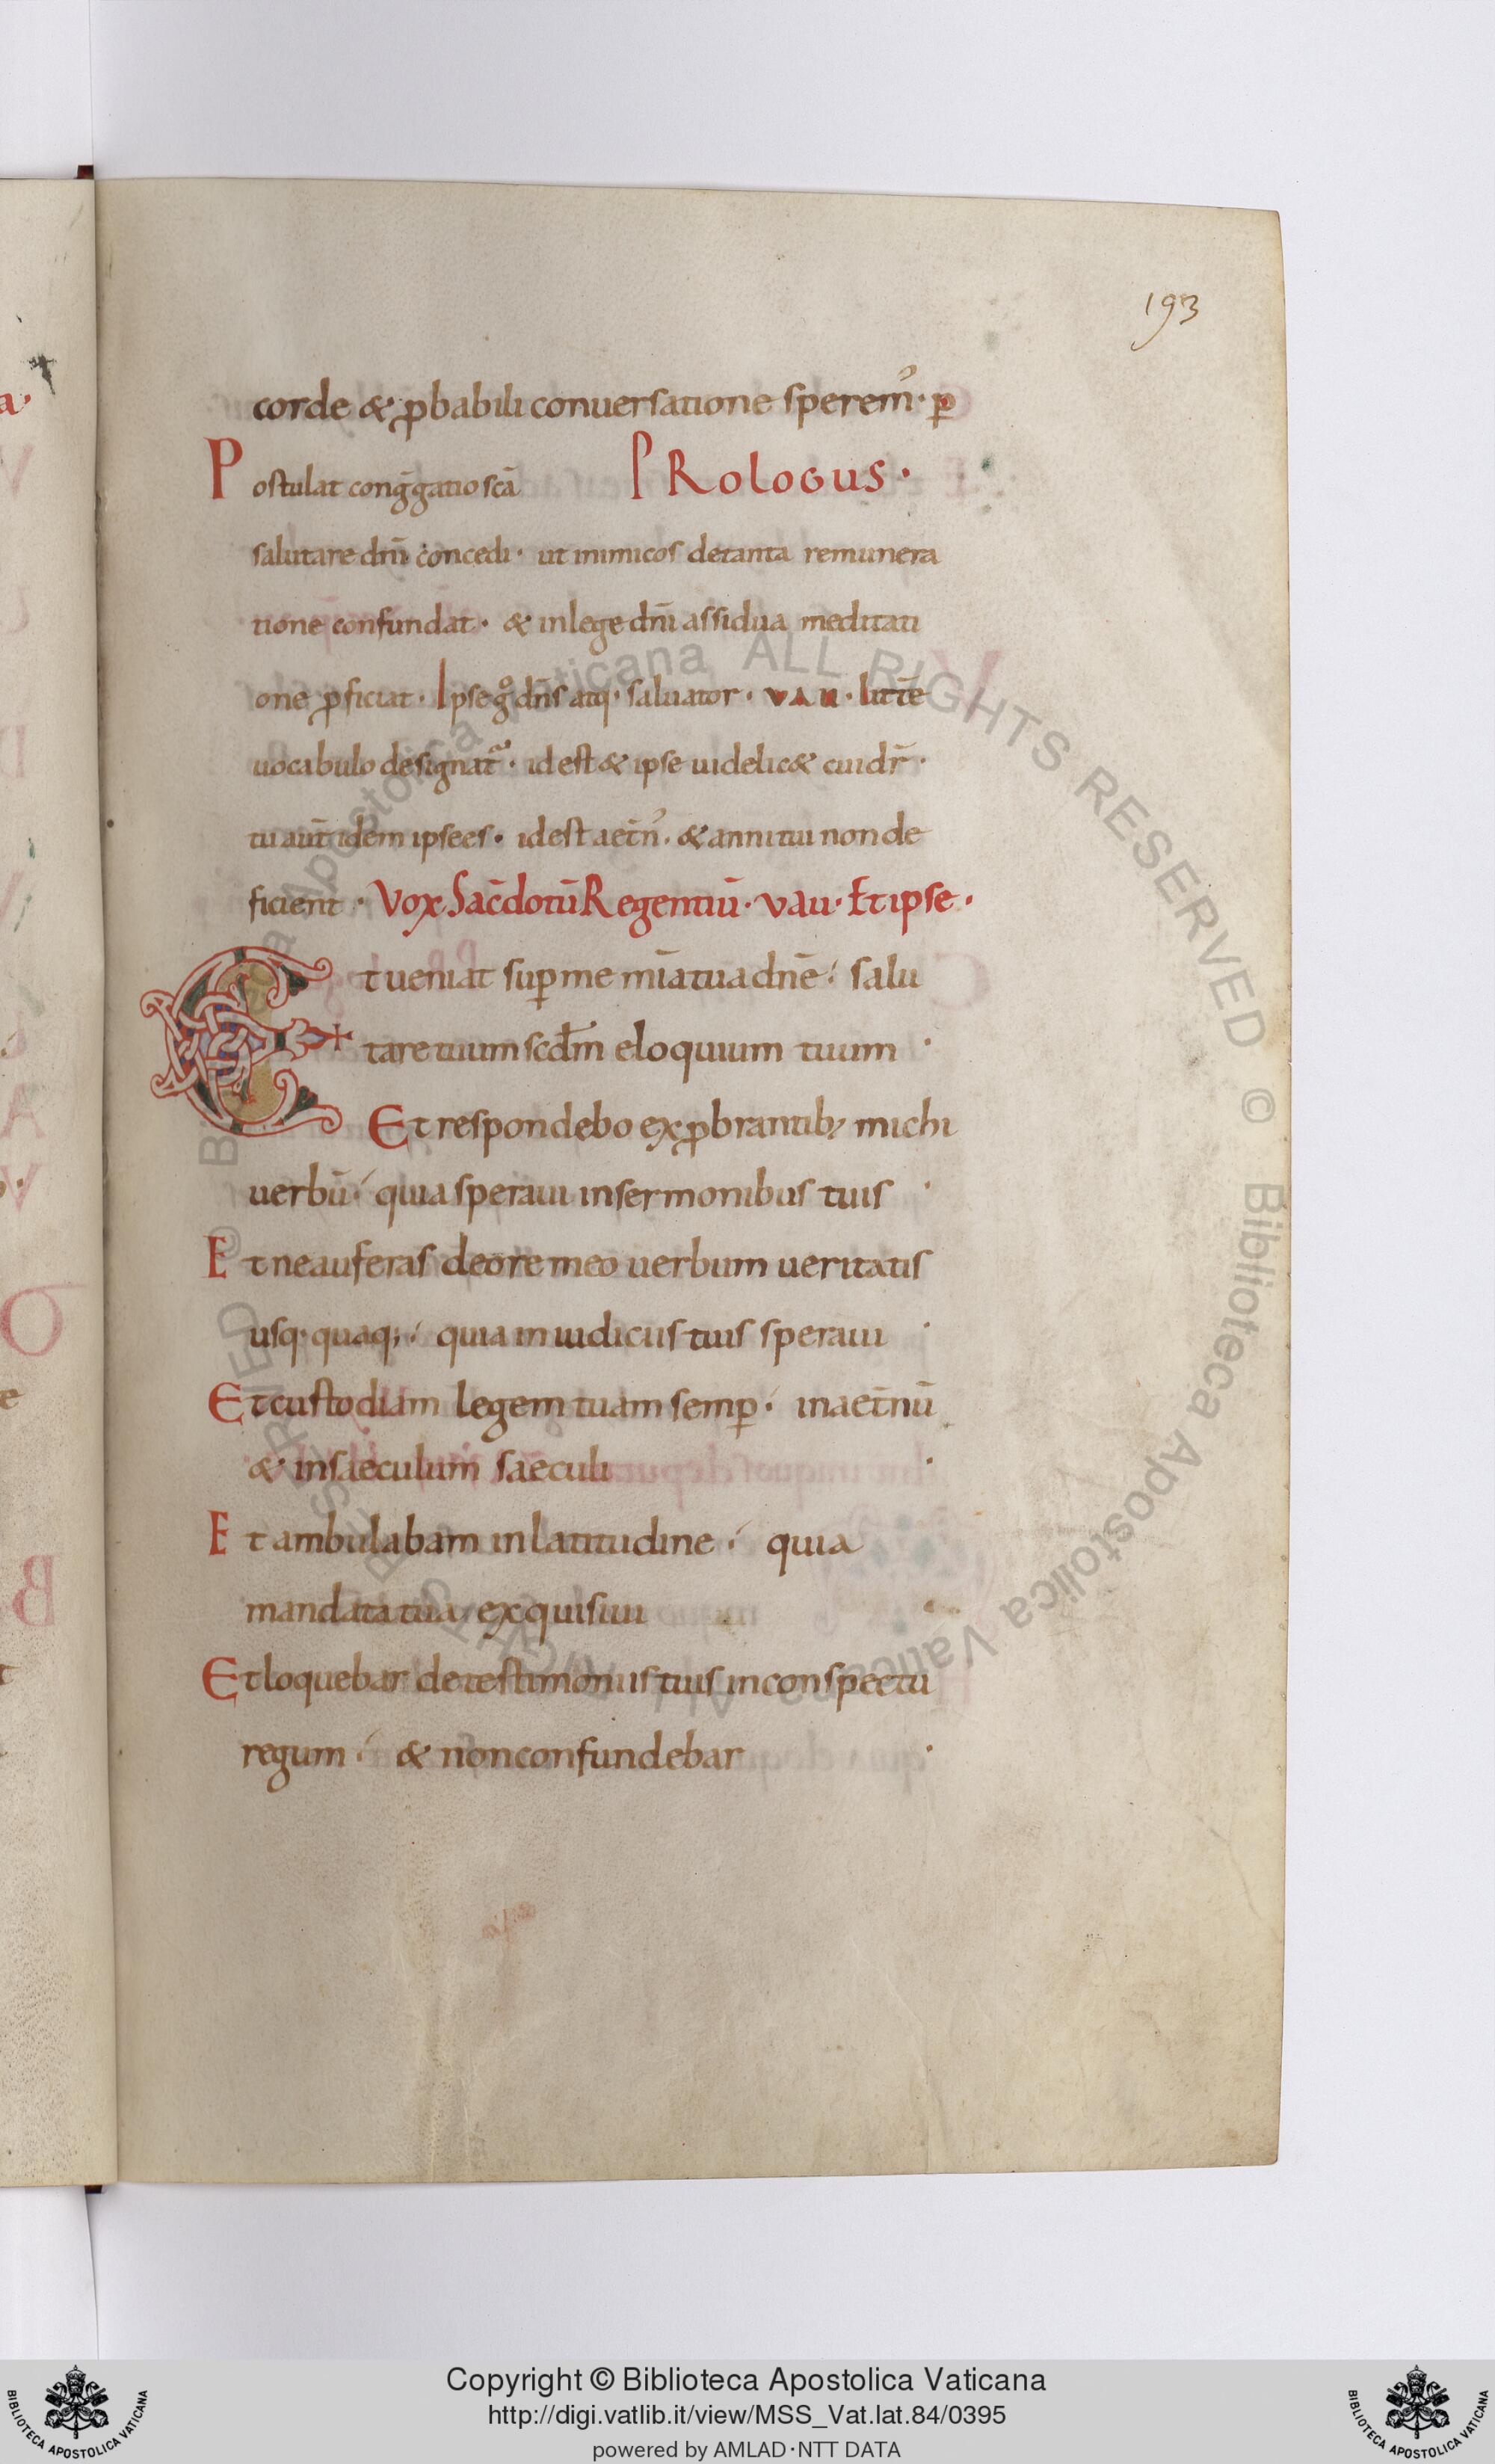 193
corde & ꝓbabili conuersatione sperem᾽· ꝑ
Postulat cong̅gatio sc̅a PRoloGus ·
salutare dn̅i concedi · ut inimicos de tanta remunera
tione confundat · & in lege dn̅i assidua meditati
one ꝓficiat · Ipse gͦ dn̅s atq· saluator · VAU · litte̅
uocabulo designat̅ · id est & ipse uidelic& cui dr̅ ·
tu aut̅ idem ipse es · id est aet̅n᾽ · & anni tui non de
ficient · Vox Sac̅dotu̅ Regentiu̅ · vau · Et ipse ·
Et ueniat suꝑ me mi̅a tua dn̅e · salu
tare tuum scd̅m eloquium tuum ·
Et respondebo exꝓbrantib; michi
uerbu̅ · quia speraui in sermonibus tuis ·
Et ne auferas de ore meo uerbum ueritatis
usq· quaq; · quia in iudiciis tuis speraui ·
Et custodiam legem tuam semꝑ · in aet̅nu̅
& in saeculum saeculi ·
Et ambulabam in latitudine · quia
mandata tua exquisiui ·
Et loquebar de testimoniis tuis in conspectu
regum · & non confundebar ·
© Biblioteca Apostolica Vaticana ALL RIGHTS RESERVED © Biblioteca Apostolica Vaticana ALL RIGHTS RESERVED
BIBLIOTECA APOSTOLICA VATICANA
Copyright © Biblioteca Apostolica Vaticana
http://digi.vatlib.it/view/MSS_Vat.lat.84/0395
powered by AMLAD·NTT DATA
BIBLIOTECA APOSTOLICA VATICANA